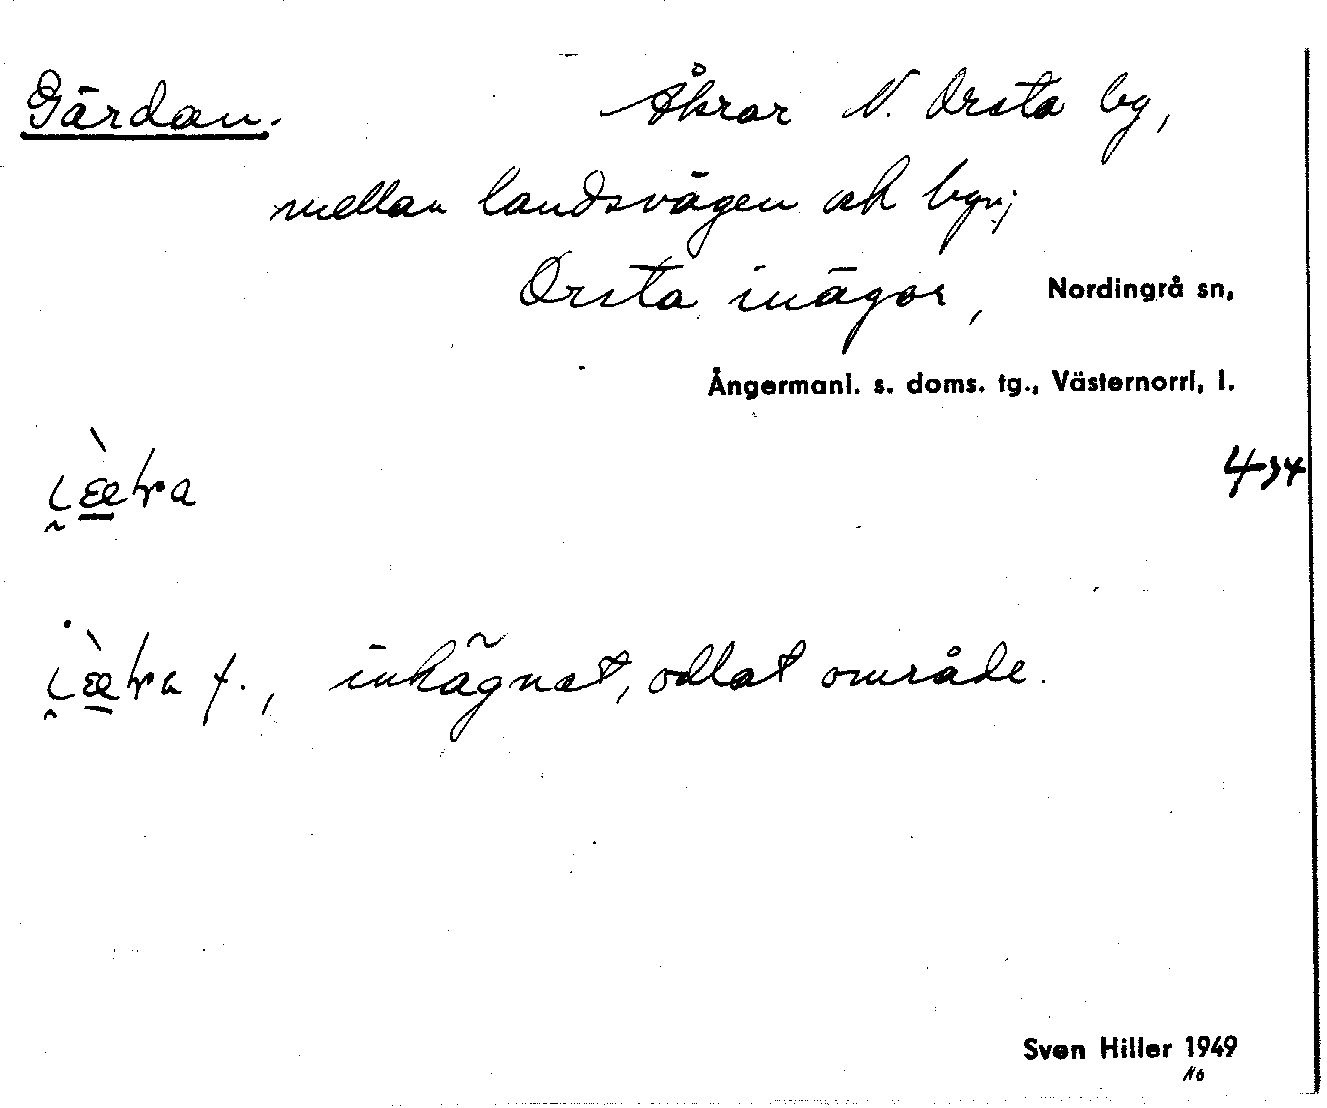 Gärdan. Åkrar N. Orsta by,
mellan landsvägen och byn;
Orsta inägor, Nordingrå sn,
Ångermanl. s. doms. tg., Västernorrl, l.
434
f., inhägnat, odlat område.
Sven Hiller 1949